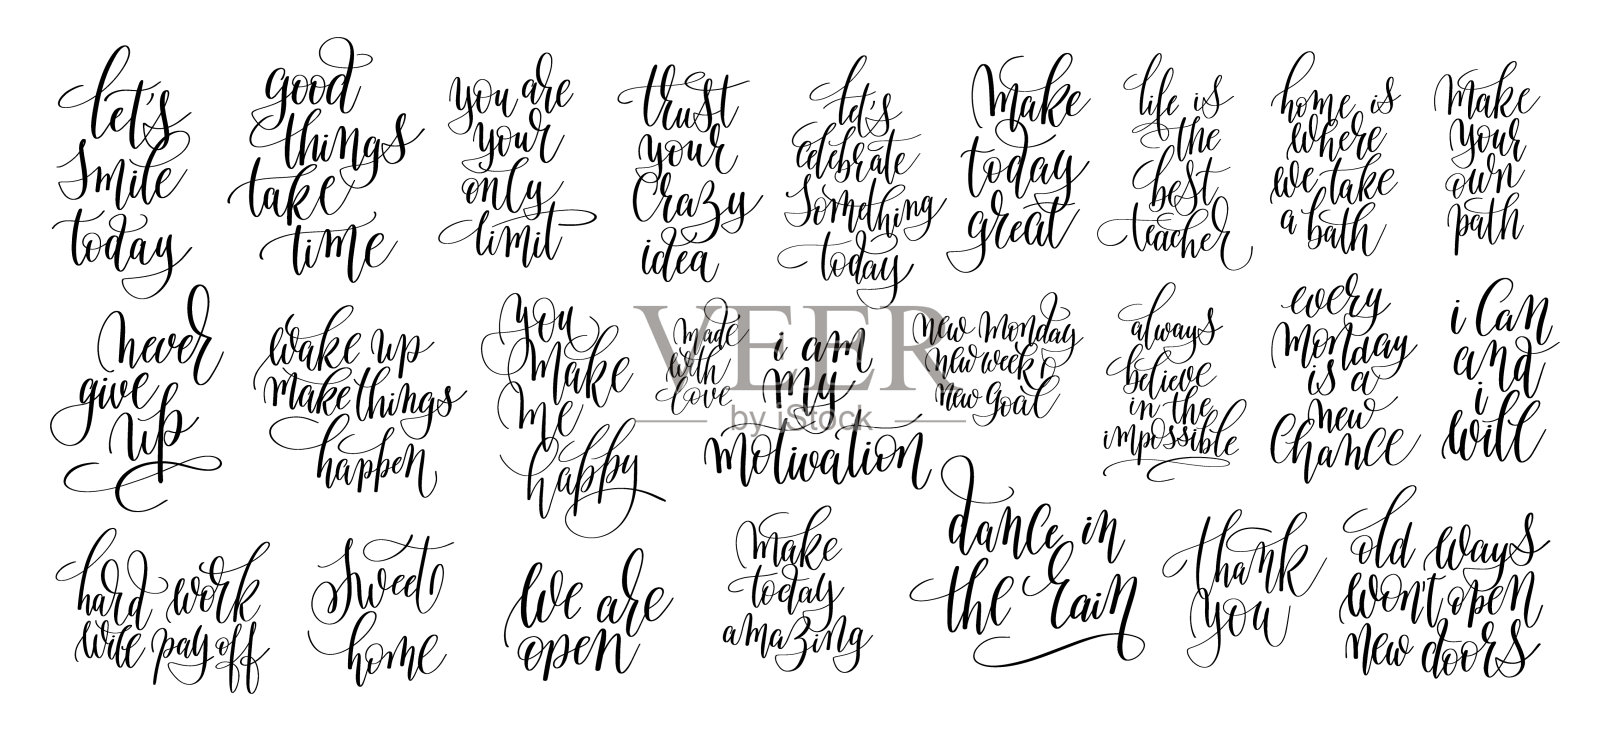 let's
smile
today
good
things
take
time
you are
your
only
limit
trust
your
crazy
idea
let's
celebrate
something
today
make
today
great
life is
the
best
teacher
home is
where
we take
a bath
make
your
own
path
never
give
up
wake up
make things
happen
you
make
me
happy
made
with
love
i am
my
motivation
new monday
new week
new goal
always
believe
in the
impossible
every
monday
is a
new
chance
i can
and
i
will
hard work
will pay off
sweet
home
we are
open
make
today
amazing
dance in
the rain
thank
you
old ways
won't open
new doors
VEER
by iStock